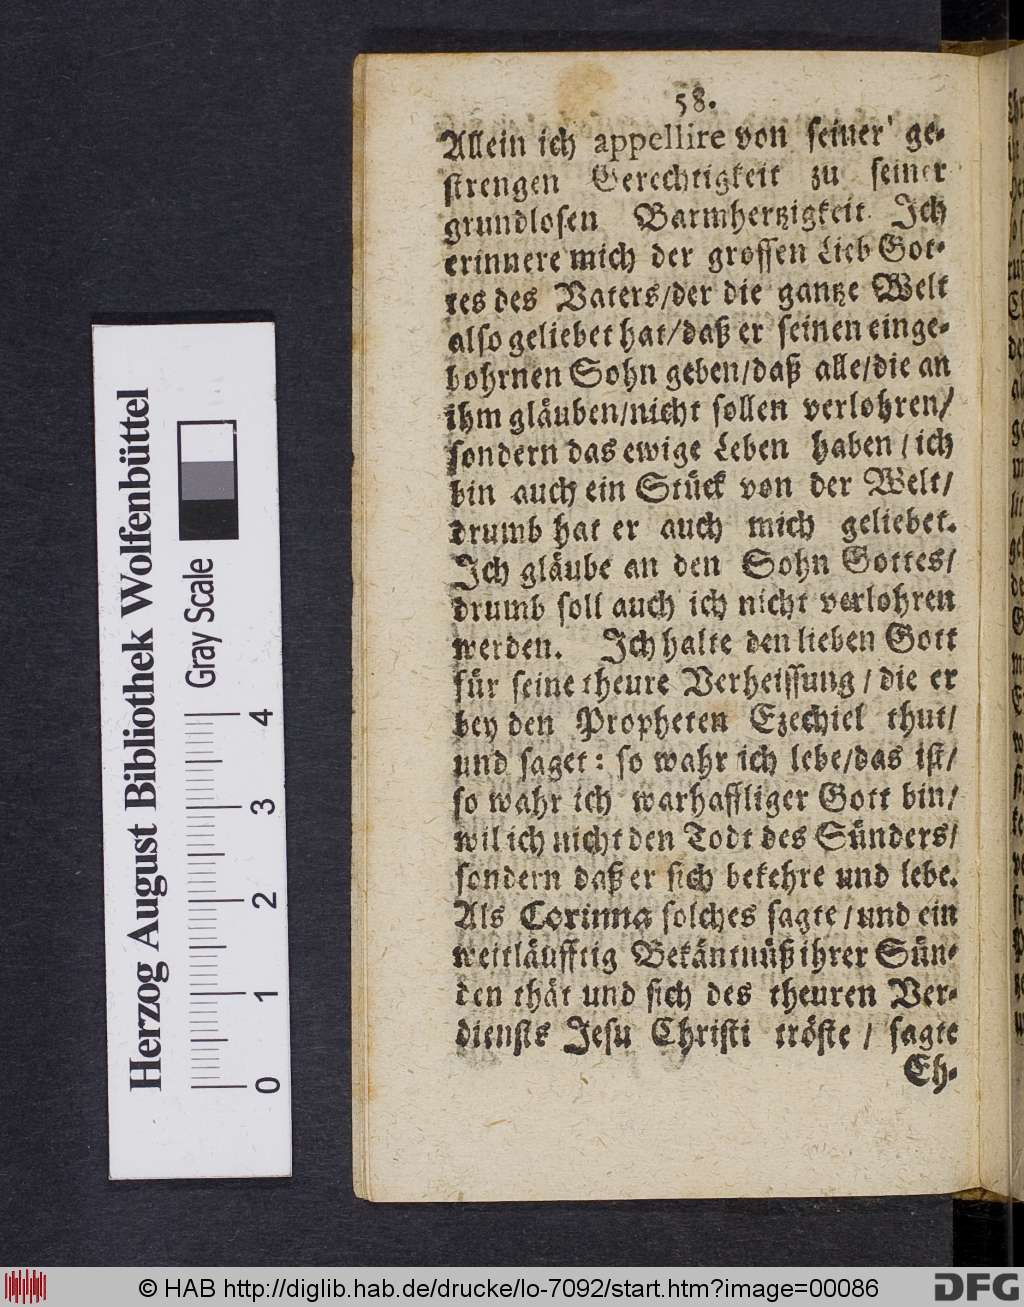 58.
Allein ich appellire von seiner ge-
strengen Gerechtigkeit zu seiner
grundlosen Barmhertzigkeit. Ich
erinnere mich der grossen Lieb Got-
tes des Vaters/der die gantze Welt
also geliebet hat/daß er seinen einge-
bohrnen Sohn geben/daß alle/die an
ihm gläuben/nicht sollen verlohren/
sondern das ewige Leben haben/ich
bin auch ein Stück von der Welt/
drumb hat er auch mich geliebet.
Ich gläube an den Sohn Gottes/
drumb soll auch ich nicht verlohren
werden. Ich halte den lieben Gott
für seine theure Verheissung/die er
bey den Propheten Ezechiel thut/
und saget: so wahr ich lebe/das ist/
so wahr ich warhafftiger Gott bin/
wil ich nicht den Todt des Sünders/
sondern daß er sich bekehre und lebe.
Als Corinna solches sagte/und ein
weitläufftig Bekäntnüß ihrer Sün-
den thät und sich des theuren Ver-
diensts Jesu Christi tröste / sagte
Eh-
Herzog August Bibliothek Wolfenbüttel
Gray Scale
0 1 2 3 4
© HAB http://diglib.hab.de/drucke/lo-7092/start.htm?image=00086
DFG